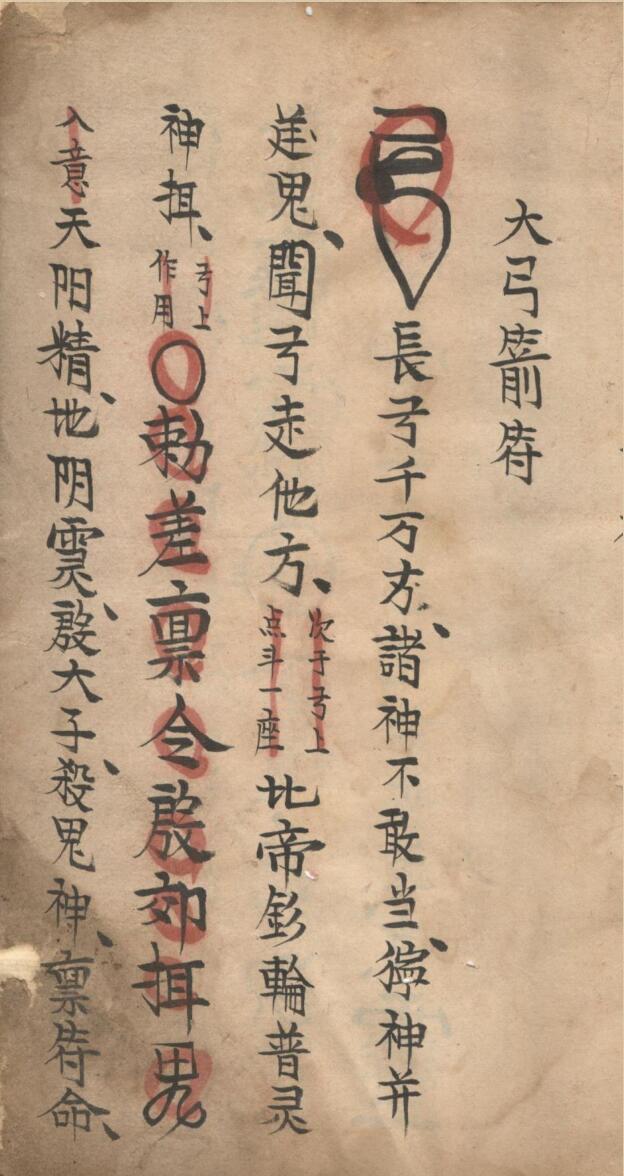 大弓箭符
長弓千万方、諸神不敢当、獰神并
逆鬼、聞弓走他方、次于弓上点斗一座北帝釤輪普灵
神揖、弓上作用○勅差禀令殷郊揖鬼
入意天阳精、地阴霊、殷大子、殺鬼神、禀符命、